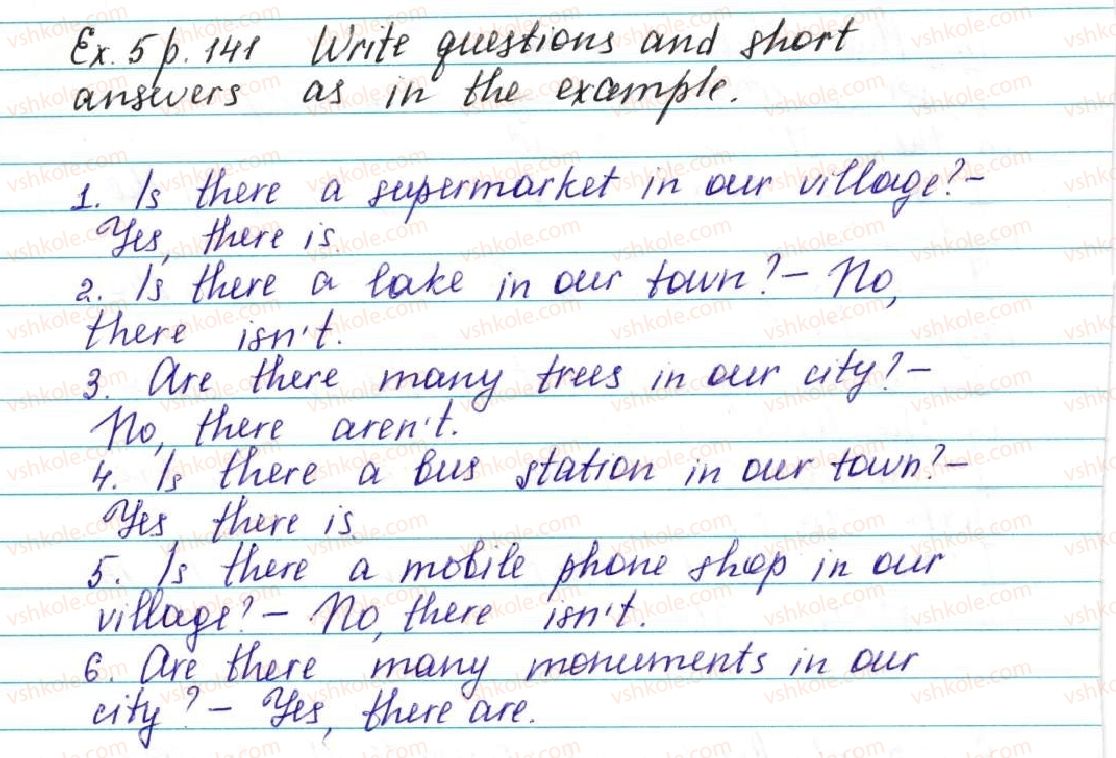 Ex. 5 p. 141 Write questions and short
answers as in the example.
1. Is there a supermarket in our village? –
Yes, there is.
2. Is there a lake in our town? – No,
there isn't.
3. Are there many trees in our city? –
No, there aren't.
4. Is there a bus station in our town? –
Yes, there is.
5. Is there a mobile phone shop in our
village? – No, there isn't.
6. Are there many monuments in our
city? – Yes, there are.